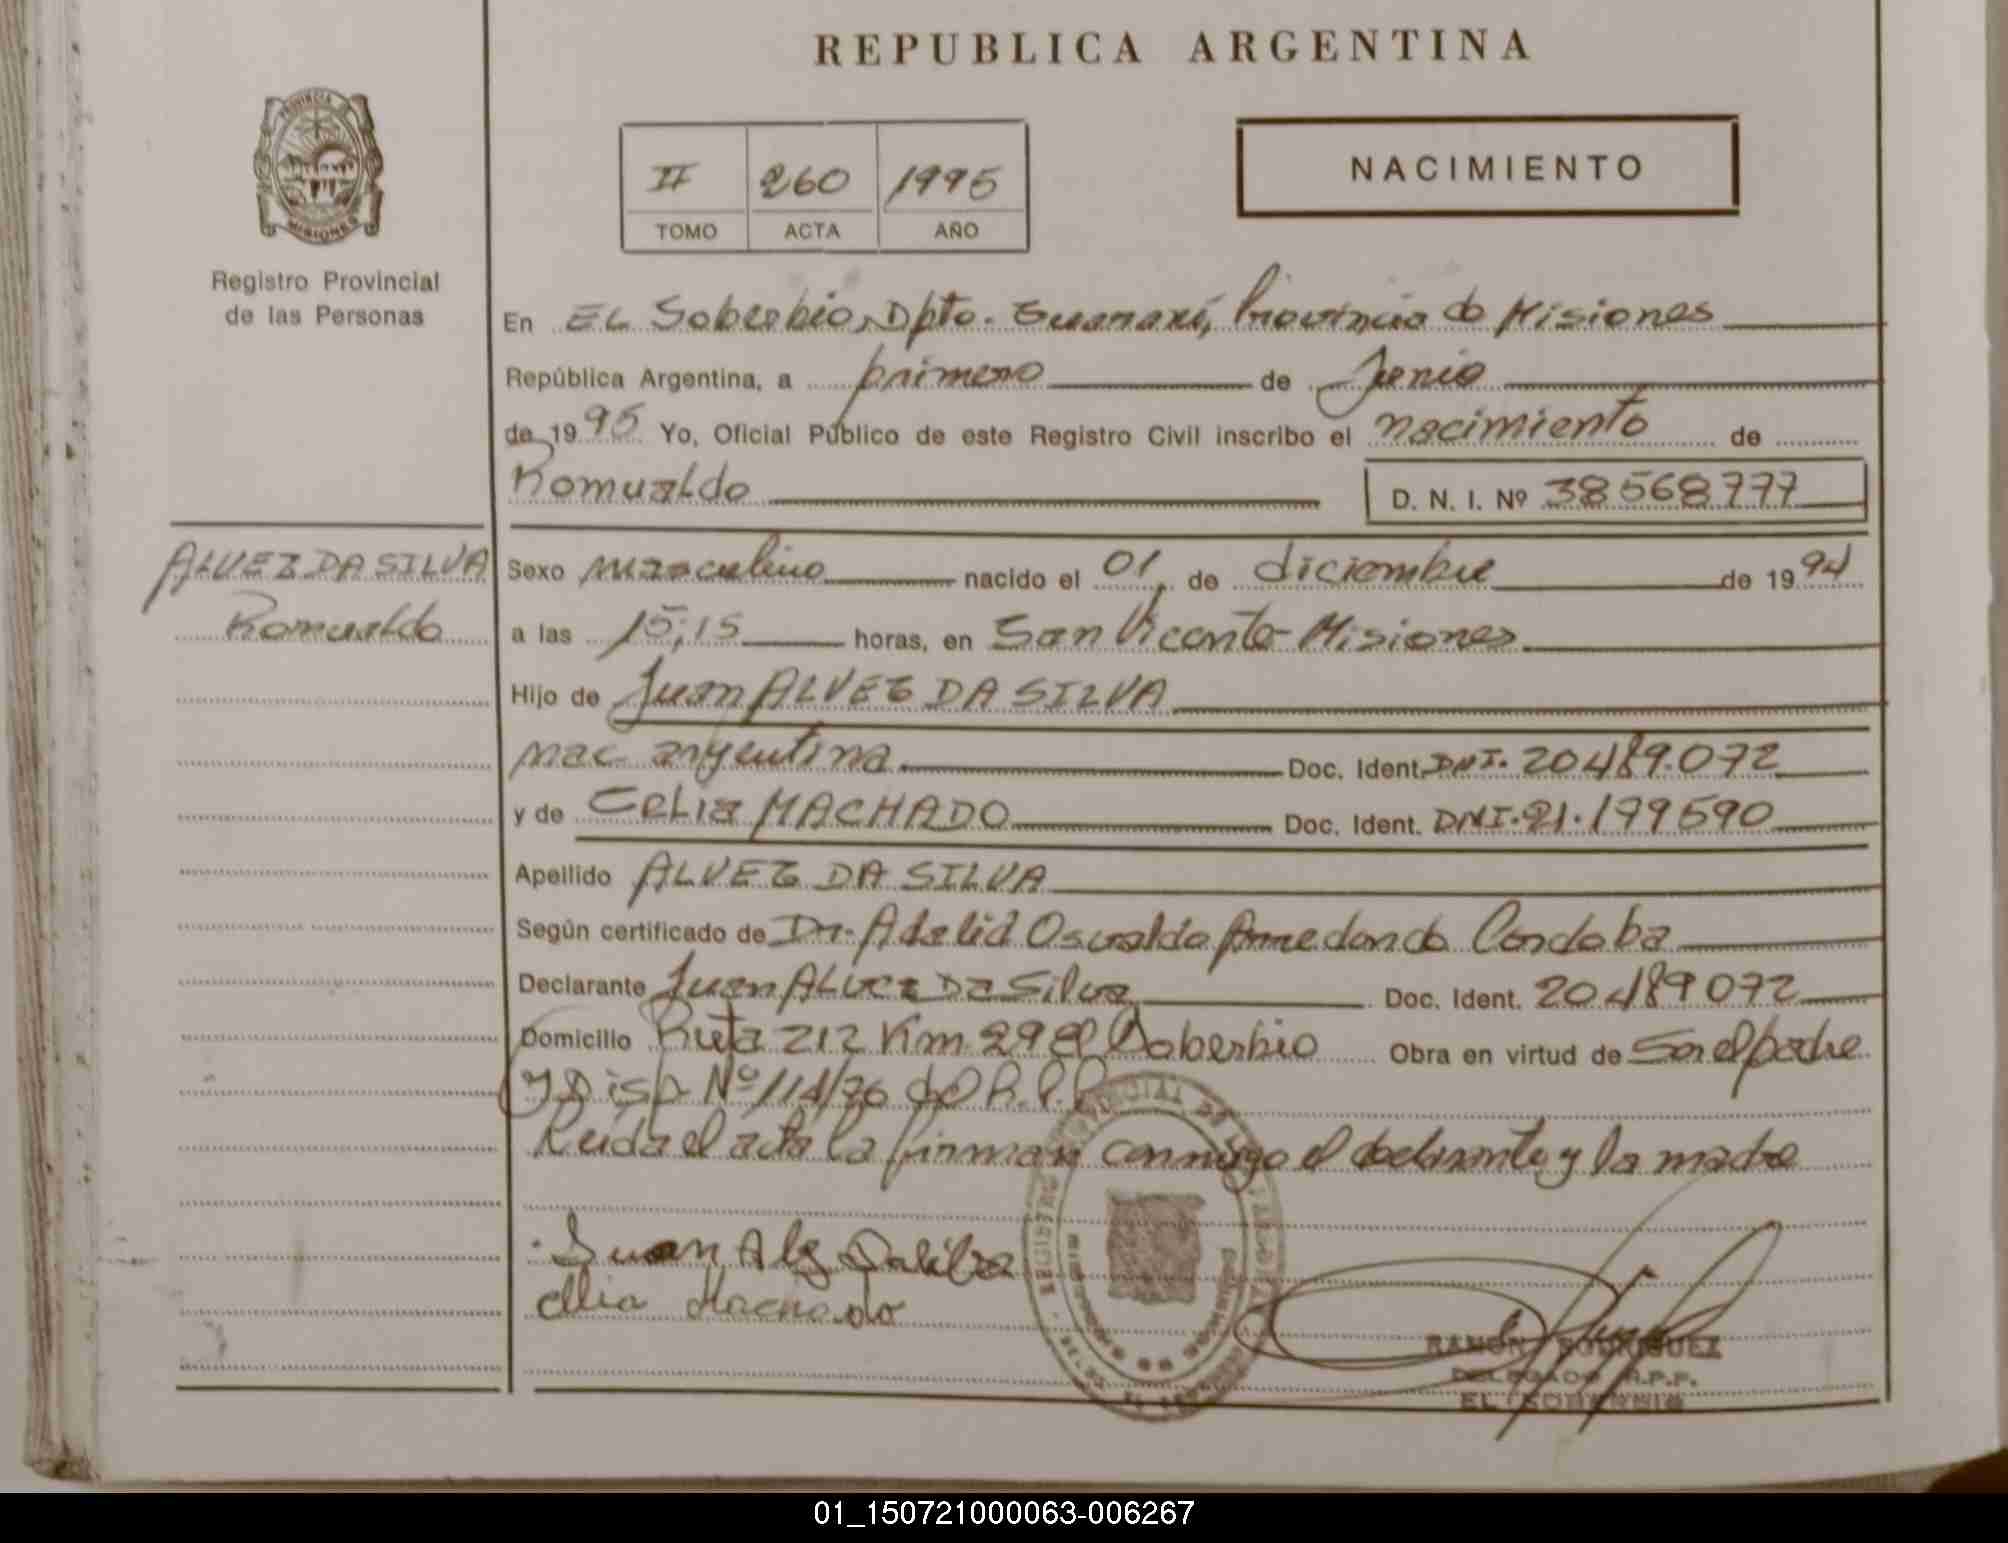 REPUBLICA ARGENTINA
PROVINCIA DE
MISIONES
Registro Provincial
de las Personas
II 260 1995
TOMO ACTA AÑO
NACIMIENTO
En EL Soberbio, Dpto. Guarani, Provincia de Misiones
República Argentina, a primero de Junio
de 1995 Yo, Oficial Público de este Registro Civil inscribo el nacimiento de
Romualdo D. N. I. Nº 38568777
ALVEZ DA SILVA
Romualdo
Sexo masculino nacido el 01 de diciembre de 1994
a las 15;15 horas, en San Vicente-Misiones
Hijo de Juan ALVEZ DA SILVA
nac. argentina Doc. Ident. DNI. 20489.072
y de CELia MACHADO Doc. Ident. DNI.21.179590
Apellido ALVEZ DA SILVA
Según certificado de Dr. Adalid Osvaldo Arredondo Cordoba
Declarante Juan ALVEZ Da Silva Doc. Ident. 20489072
Domicilio Ruta 212 Km 29 El Soberbio Obra en virtud de Ser el padre
y Disp Nº 114/76 del R.P.P
Leida el acta la firman conmigo el declarante y la madre
Juan
Machado
RAMON RODRIGUEZ
DELEGADO R.P.P.
EL SOBERBIO
01_150721000063-006267